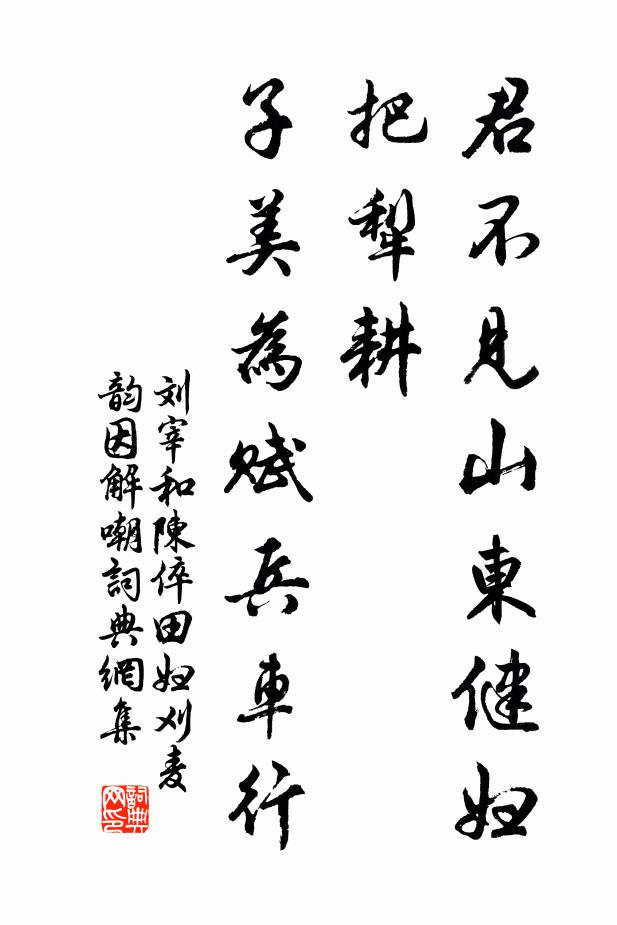 君不見山東健婦
把犁耕
子美為賦兵車行
刘宰和陳倅田妇刈麦
韵因解嘲詞典網集
詞典网印